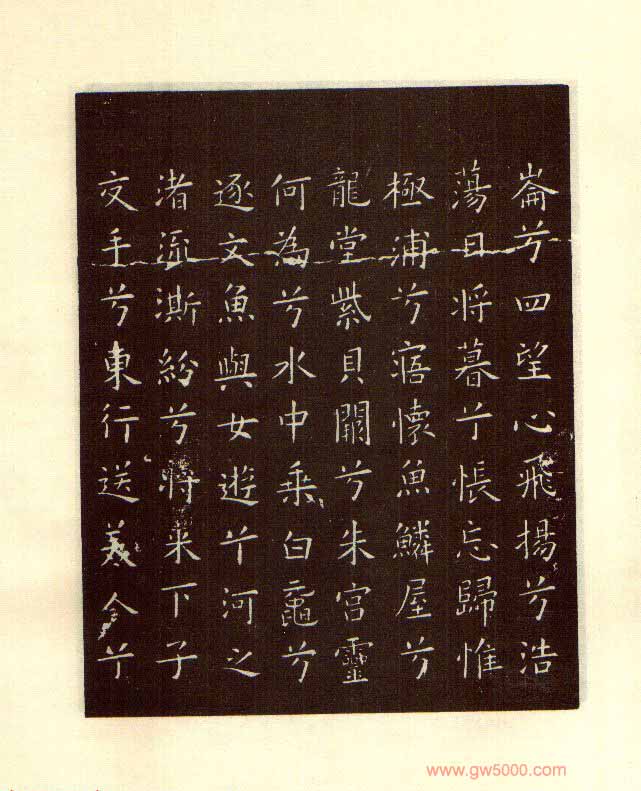 崙兮四望心飛揚兮浩
蕩日将暮兮悵忘歸惟
極浦兮寤懷魚鱗屋兮
龍堂紫貝闕兮朱宮靈
何為兮水中乘白黿兮
逐文魚與女遊兮河之
渚流澌紛兮將来下子
交手兮東行送美人兮
www.gw5000.com